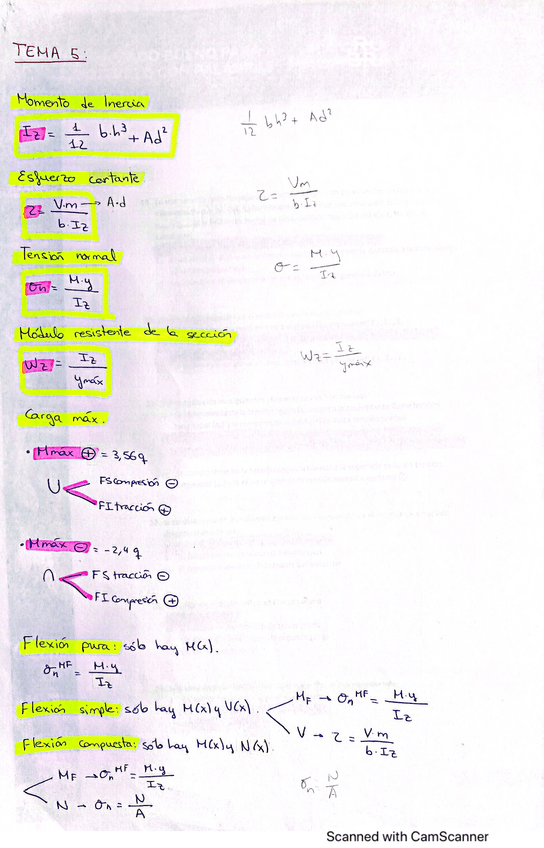 TEMA 5:
Momento de Inercia
Iz = 1/12 b·h³ + Ad²
1/12 bh³ + Ad²
Esfuerzo cortante
τ = V·m/b·Iz → A·d
τ = Vm/b·Iz
Tensión normal
σn = M·y/Iz
σ = M·y/Iz
Módulo resistente de la sección
Wz = Iz/ymáx
Wz = Iz/ymáx
Carga máx.
• Mmáx ⊕ = 3,56q
U < FS compresión ⊖
FI tracción ⊕
• Mmáx ⊖ = -2,4q
∩ < FS tracción ⊖
FI compresión ⊕
Flexión pura: sólo hay M(x).
σn^MF = M·y/Iz
Flexión simple: sólo hay M(x) y V(x). < MF → σn^MF = M·y/Iz
V → τ = V·m/b·Iz
Flexión compuesta: sólo hay M(x) y N(x).
MF → σn^MF = M·y/Iz
N → σn = N/A
σn = N/A
Scanned with CamScanner